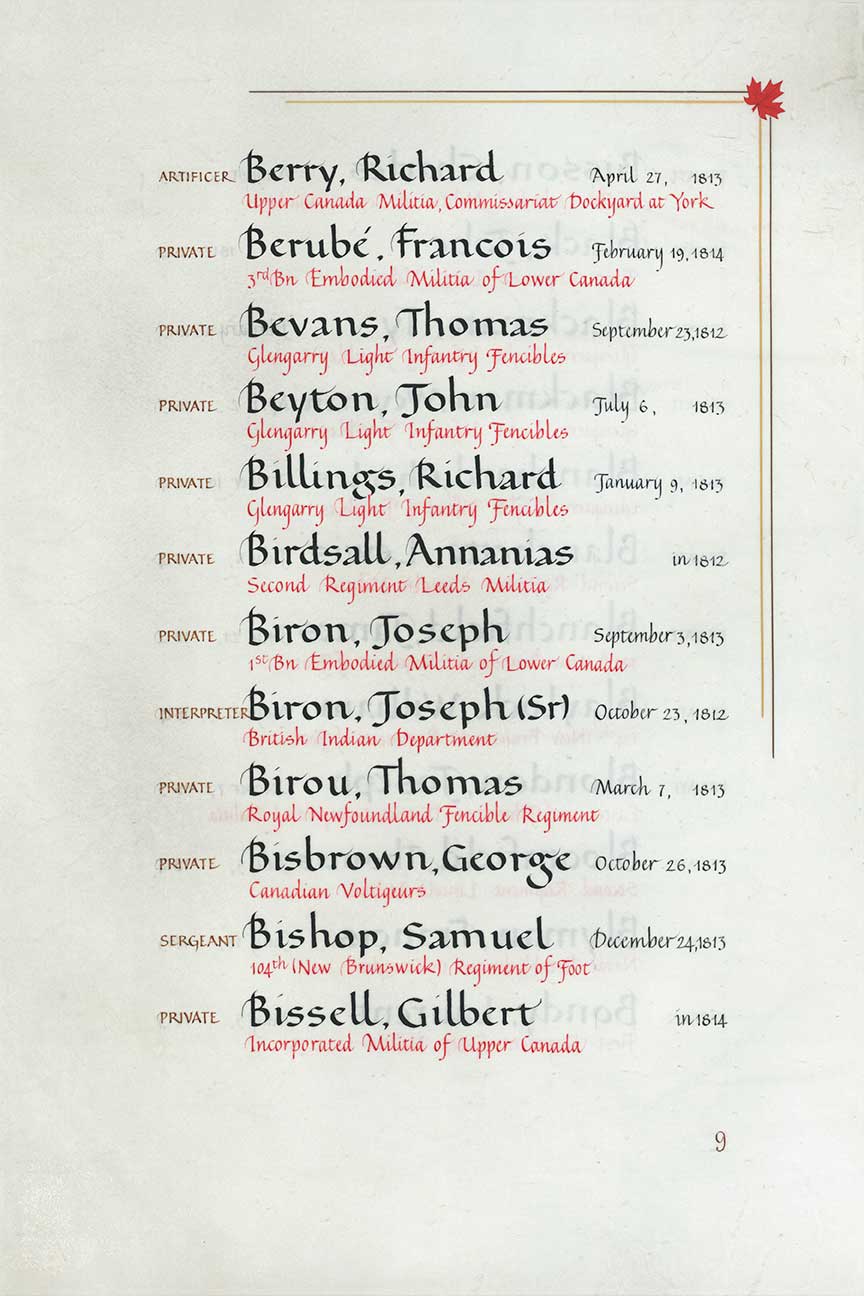 ARTIFICER Berry, Richard April 27, 1813
Upper Canada Militia, Commissariat Dockyard at York
PRIVATE Berubé, Francois February 19, 1814
3rd Bn Embodied Militia of Lower Canada
PRIVATE Bevans, Thomas September 23, 1812
Glengarry Light Infantry Fencibles
PRIVATE Beyton, John July 6, 1813
Glengarry Light Infantry Fencibles
PRIVATE Billings, Richard January 9, 1813
Glengarry Light Infantry Fencibles
PRIVATE Birdsall, Annanias in 1812
Second Regiment Leeds Militia
PRIVATE Biron, Joseph September 3, 1813
1st Bn Embodied Militia of Lower Canada
INTERPRETER Biron, Joseph (Sr) October 23, 1812
British Indian Department
PRIVATE Birou, Thomas March 7, 1813
Royal Newfoundland Fencible Regiment
PRIVATE Bisbrown, George October 26, 1813
Canadian Voltigeurs
SERGEANT Bishop, Samuel December 24, 1813
104th (New Brunswick) Regiment of Foot
PRIVATE Bissell, Gilbert in 1814
Incorporated Militia of Upper Canada
9